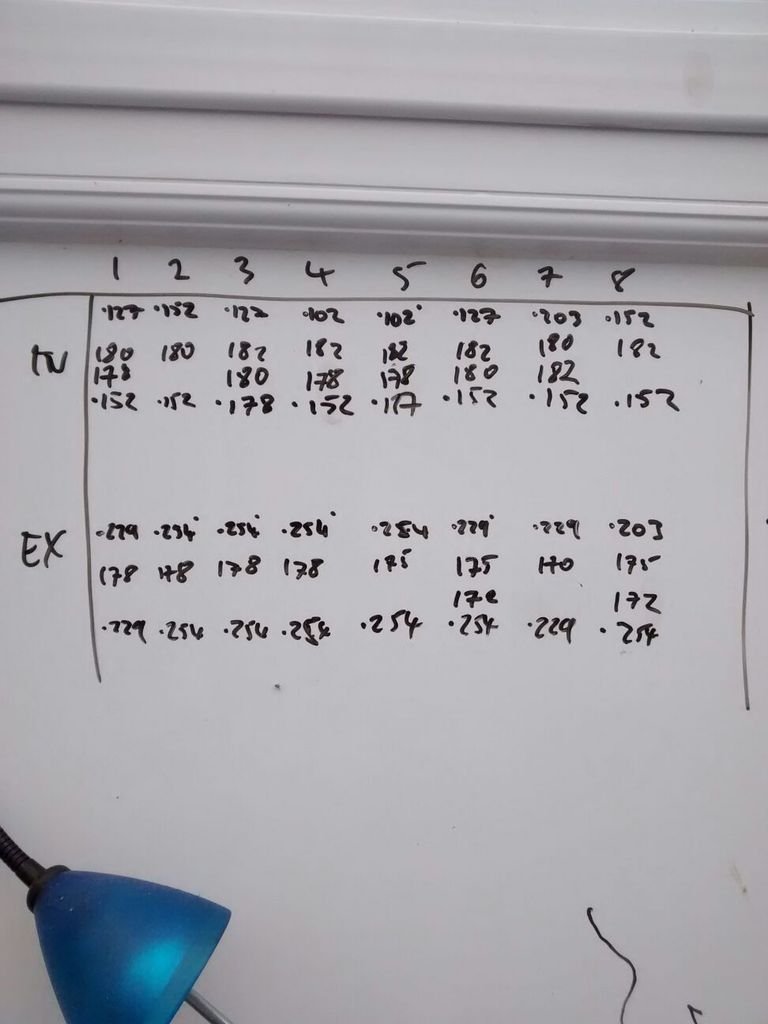 1 2 3 4 5 6 7 8
.127 .152 .127 .102 .102 .127 .203 .152
IN 180 180 182 182 182 182 180 182
178 180 178 178 180 182
.152 .152 .178 .152 .152 .152 .152
EX .229 .254 .254 .254 .254 .229 .229 .203
178 178 178 178 175 175 170 175
172
.229 .254 .254 .254 .254 .254 .229 .254